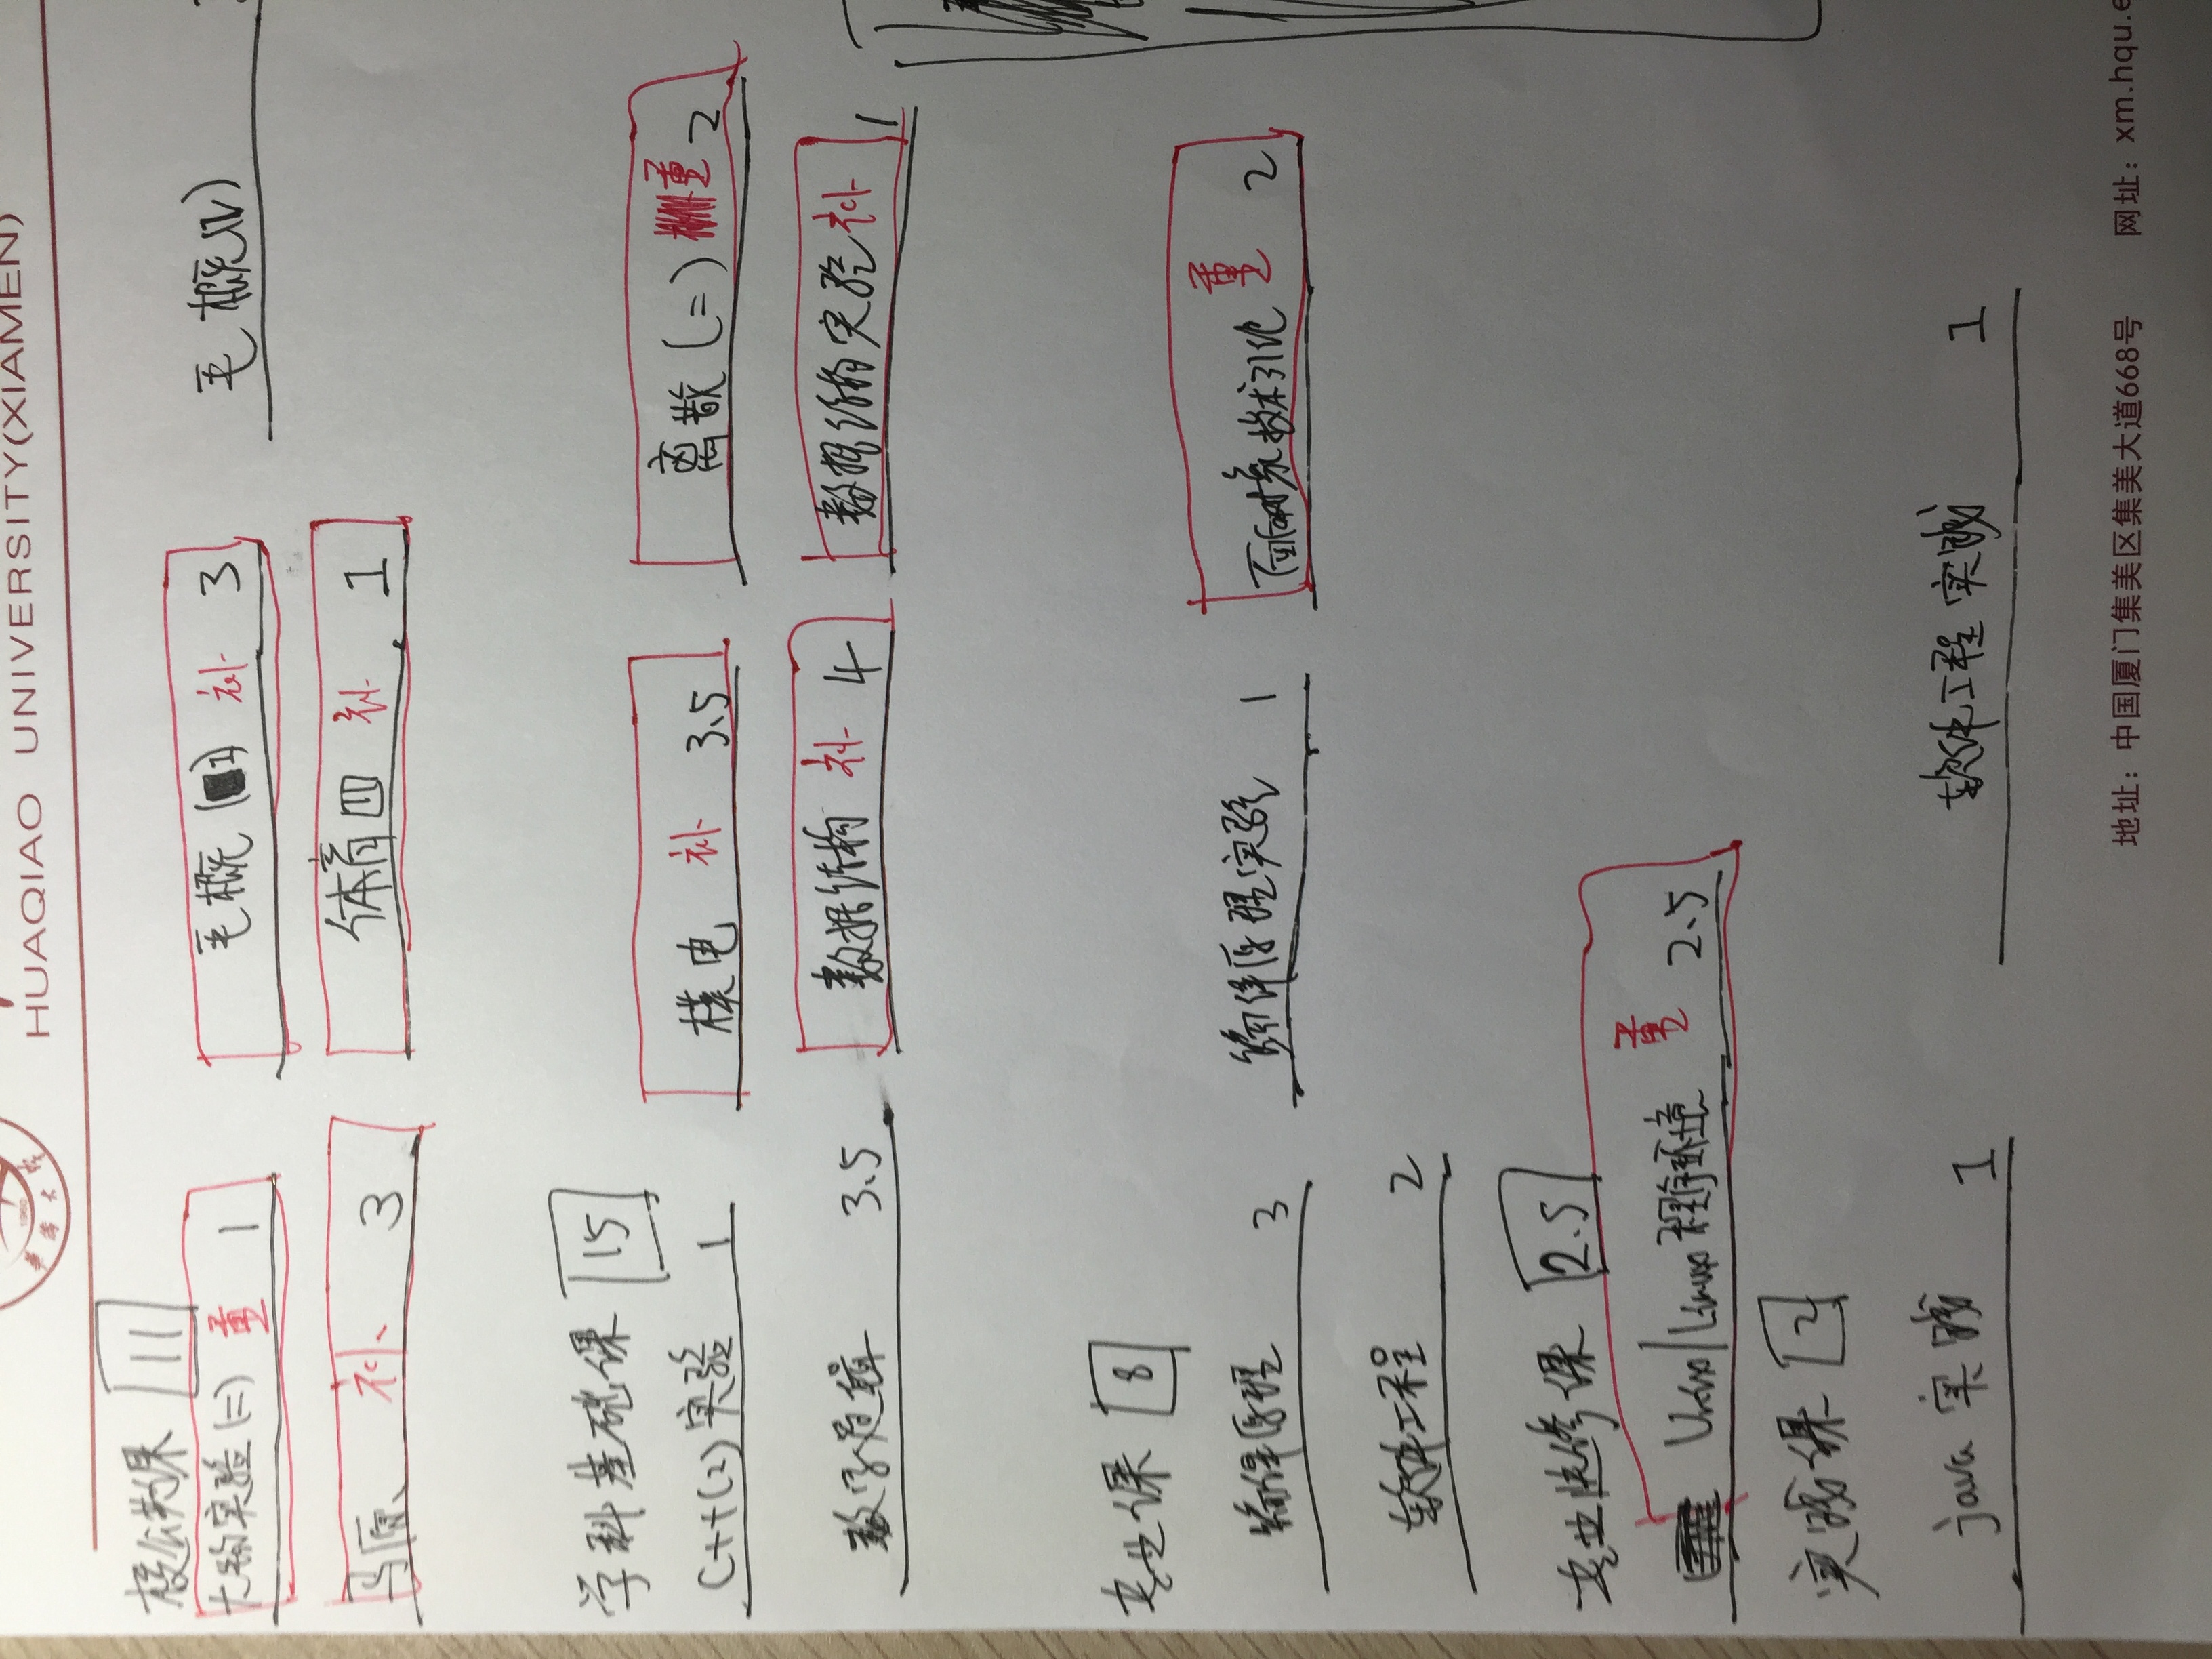 1960
華僑大學
HUAQIAO UNIVERSITY(XIAMEN)
校公共课 11
大物实验(二) 重 1 毛概(1) 补 3 毛概(Ⅳ)
马原 补 3 体育四 补 1
学科基础课 15
C++(2)实验 1 模电 补 3.5 离散(二) 重 2
数字逻辑 3.5 数据结构 补 4 数据结构实验 补 1
专业课 8
编译原理 3 编译原理实验 1 面向对象技术引论 重 2
软件工程 2
专业选修课 2.5
Unix/Linux程序环境 重 2.5
实践课 2
java 实践 1 软件工程实践 1
地址：中国厦门集美区集美大道668号 网址：xm.hqu.e